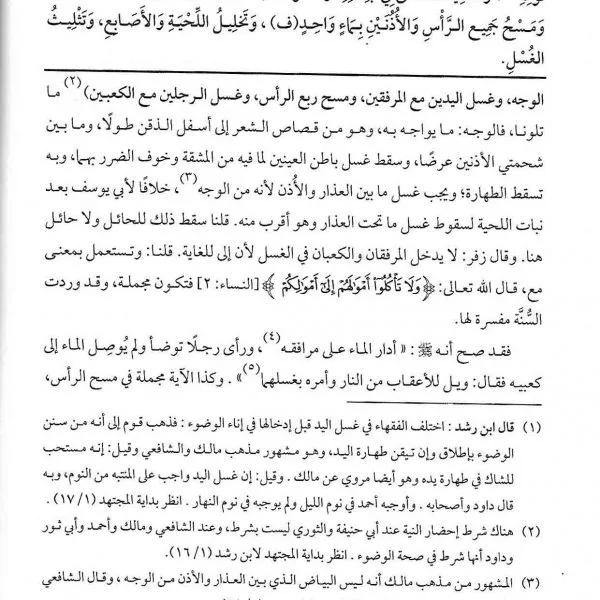 وَمَسْحُ جَمِيعِ الرَّأْسِ وَالأُذُنَيْنِ بِمَاءٍ وَاحِدٍ(ف) ، وَتَخْلِيلُ اللِّحْيَةِ وَالأَصَابِعِ، وَتَثْلِيثُ
الغُسْلِ.
الوجه، وغسل اليدين مع المرفقين، ومسح ربع الرأس، وغسل الرجلين مع الكعبين)(٢) ما
تلونا، فالوجه: ما يواجه به، وهو من قصاص الشعر إلى أسفل الذقن طولًا، وما بين
شحمتي الأذنين عرضًا، وسقط غسل باطن العينين لما فيه من المشقة وخوف الضرر بهما، وبه
تسقط الطهارة؛ ويجب غسل ما بين العذار والأُذن لأنه من الوجه(٣)، خلافًا لأبي يوسف بعد
نبات اللحية لسقوط غسل ما تحت العذار وهو أقرب منه. قلنا سقط ذلك للحائل ولا حائل
هنا. وقال زفر: لا يدخل المرفقان والكعبان في الغسل لأن إلى للغاية. قلنا: وتستعمل بمعنى
مع، قال الله تعالى: ﴿وَلَا تَأْكُلُوٓا۟ أَمْوَٰلَهُمْ إِلَىٰٓ أَمْوَٰلِكُمْ﴾[النساء: ٢] فتكون مجملة، وقد وردت
السُّنَّة مفسرة لها.
فقد صح أنه ﷺ: «أدار الماء على مرافقه(٤)، ورأى رجلًا توضأ ولم يُوصِل الماء إلى
كعبيه فقال: ويل للأعقاب من النار وأمره بغسلهما(٥)». وكذا الآية مجملة في مسح الرأس،
(١) قال ابن رشد : اختلف الفقهاء في غسل اليد قبل إدخالها في إناء الوضوء : فذهب قوم إلى أنه من سنن
الوضوء بإطلاق وإن تيقن طهارة اليد، وهو مشهور مذهب مالك والشافعي وقيل: إنه مستحب
للشاك في طهارة يده وهو أيضا مروي عن مالك . وقيل: إن غسل اليد واجب على المنتبه من النوم، وبه
قال داود وأصحابه . وأوجبه أحمد في نوم الليل ولم يوجبه في نوم النهار . انظر بداية المجتهد (١/ ١٧) .
(٢) هناك شرط إحضار النية عند أبي حنيفة والثوري ليست بشرط، وعند الشافعي ومالك وأحمد وأبي ثور
وداود أنها شرط في صحة الوضوء . انظر بداية المجتهد لابن رشد (١/ ١٦) .
(٣) المشهور من مذهب مالك أنه ليس البياض الذي بين العذار والأذن من الوجه ، وقال الشافعي